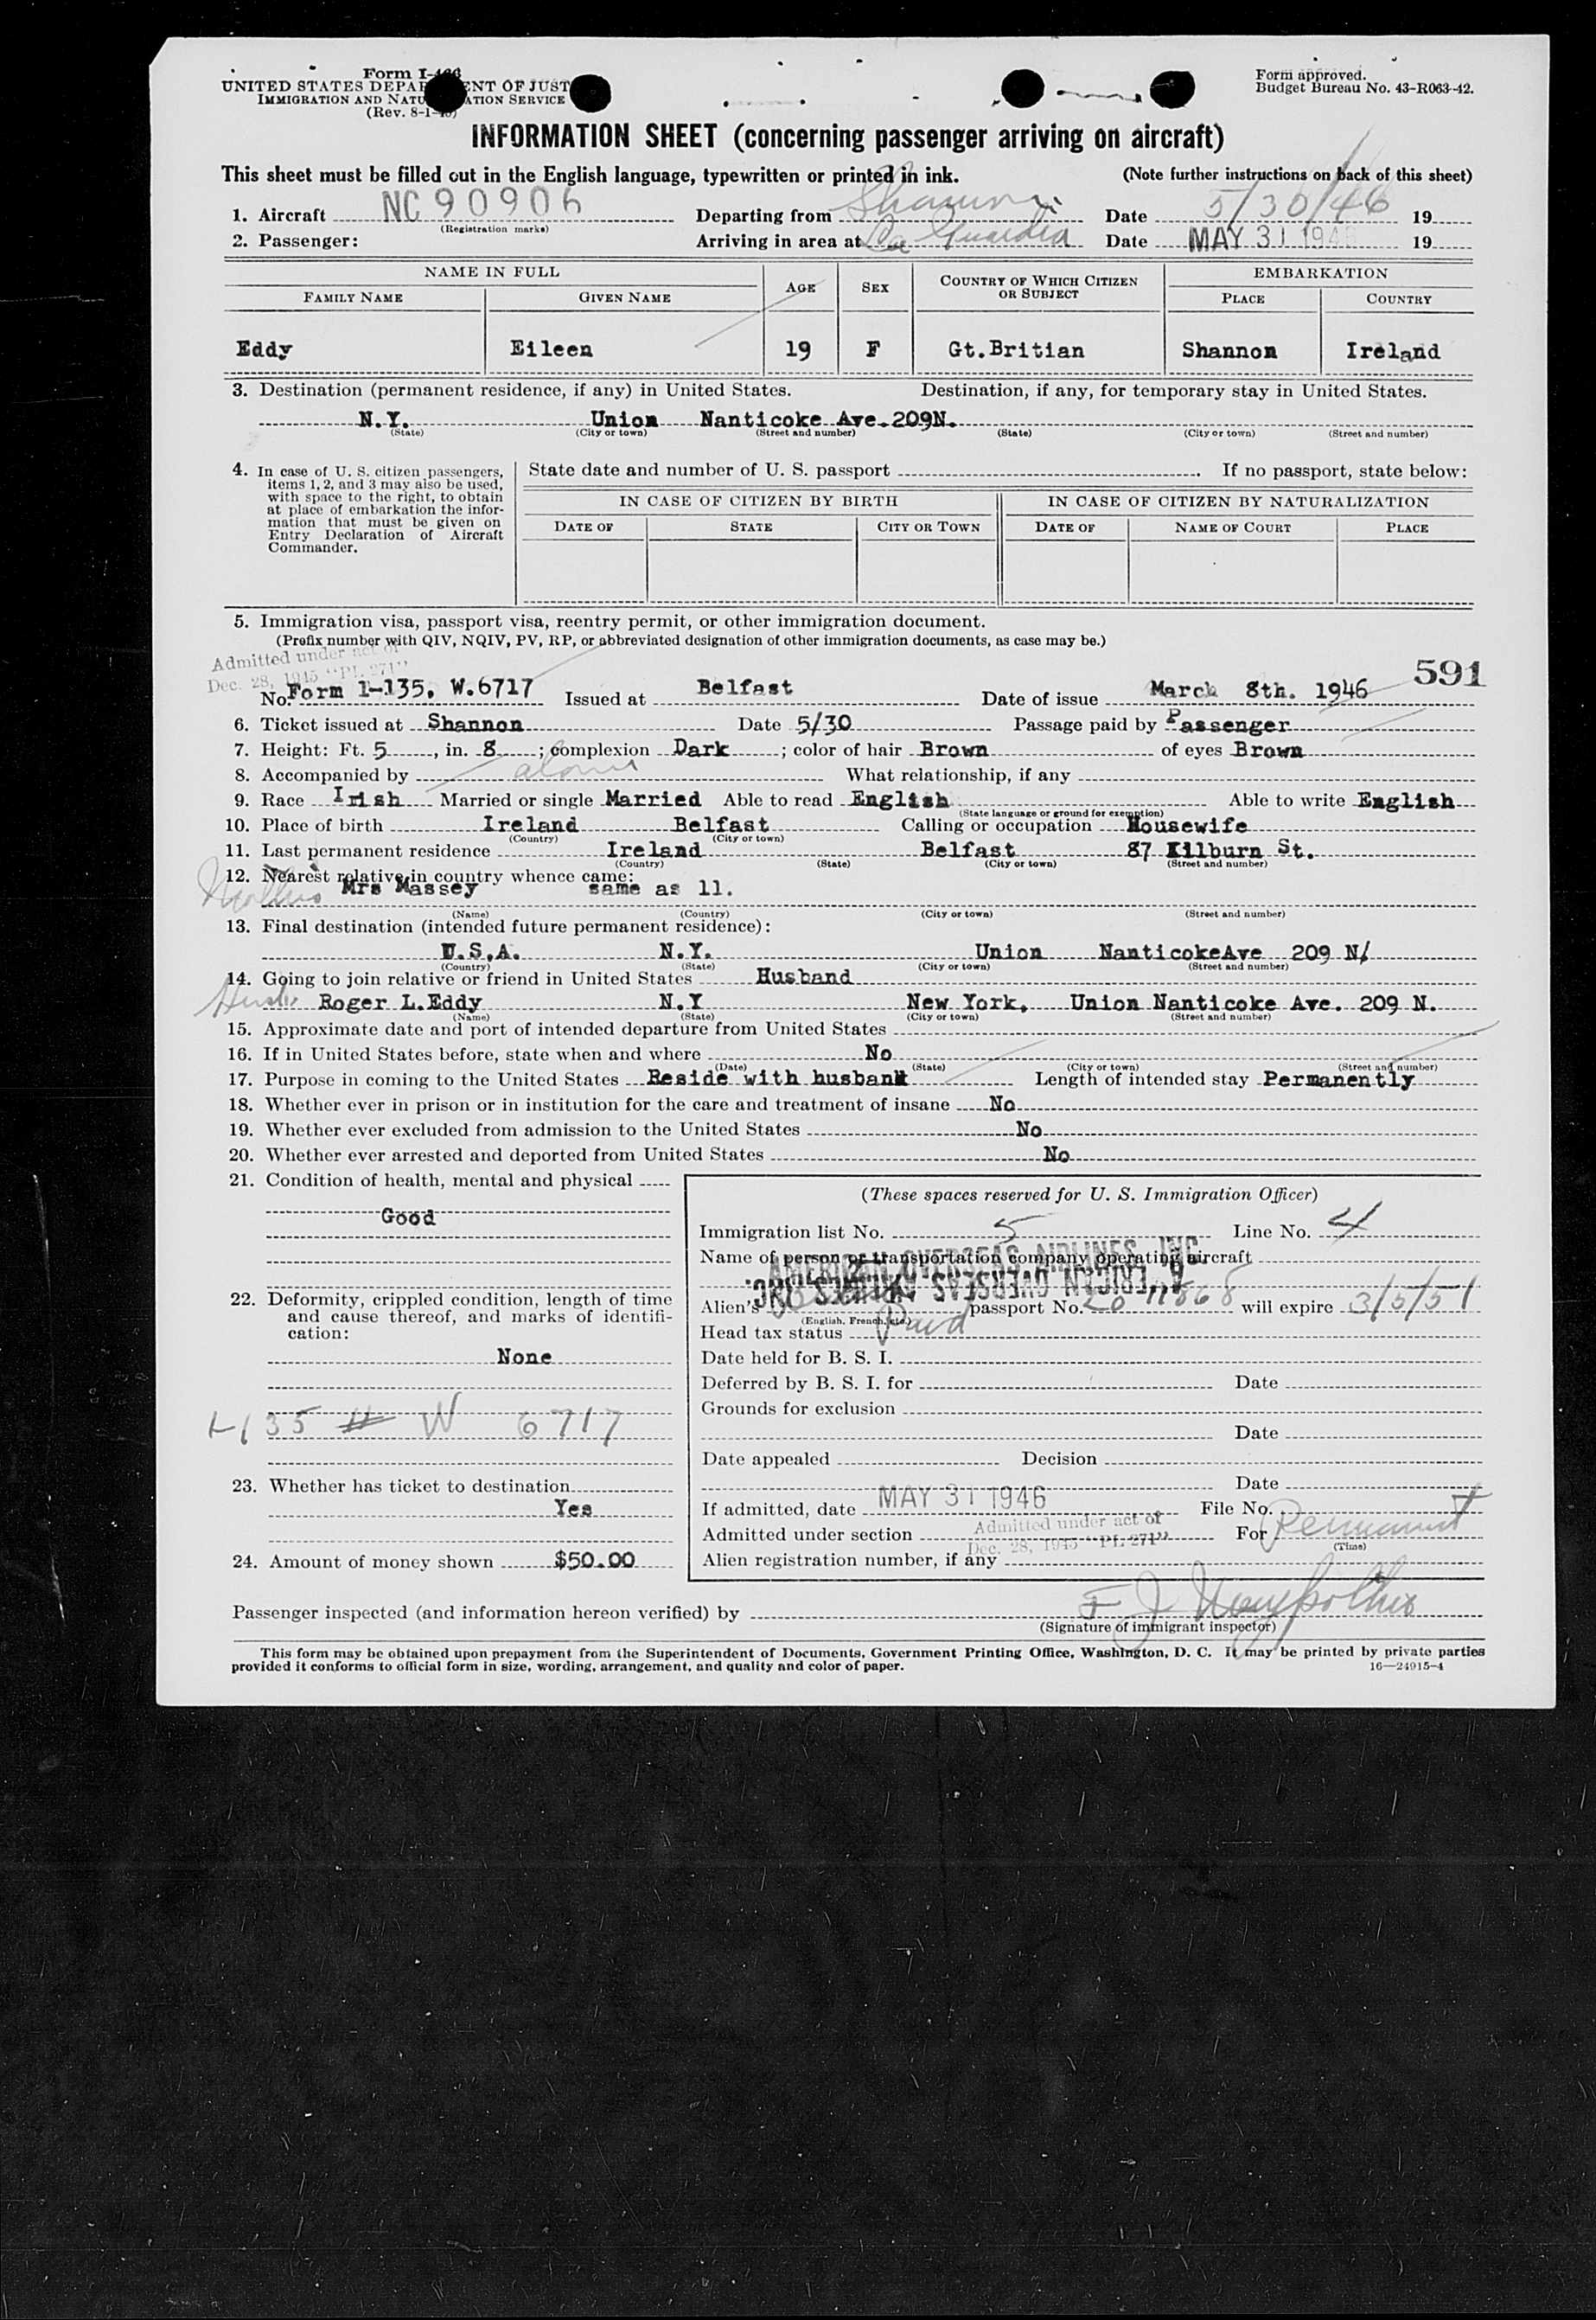 Form I-466
UNITED STATES DEPARTMENT OF JUST
IMMIGRATION AND NATURALIZATION SERVICE
(Rev. 8-1-45)
Form approved.
Budget Bureau No. 43-R063-42.
INFORMATION SHEET (concerning passenger arriving on aircraft)
This sheet must be filled out in the English language, typewritten or printed in ink. (Note further instructions on back of this sheet)
1. Aircraft NC 90906 Departing from Shannon Date 5/30/46 19
(Registration marks)
2. Passenger: Arriving in area at La Guardia Date MAY 31 1946 19
NAME IN FULL AGE SEX COUNTRY OF WHICH CITIZEN OR SUBJECT EMBARKATION
FAMILY NAME GIVEN NAME PLACE COUNTRY
Eddy Eileen 19 F Gt.Britian Shannon Ireland
3. Destination (permanent residence, if any) in United States. Destination, if any, for temporary stay in United States.
N.Y. Union Nanticoke Ave.209N.
(State) (City or town) (Street and number) (State) (City or town) (Street and number)
4. In case of U. S. citizen passengers, items 1, 2, and 3 may also be used, with space to the right, to obtain at place of embarkation the information that must be given on Entry Declaration of Aircraft Commander.
State date and number of U. S. passport . If no passport, state below:
IN CASE OF CITIZEN BY BIRTH IN CASE OF CITIZEN BY NATURALIZATION
DATE OF STATE CITY OR TOWN DATE OF NAME OF COURT PLACE
5. Immigration visa, passport visa, reentry permit, or other immigration document.
(Prefix number with QIV, NQIV, PV, RP, or abbreviated designation of other immigration documents, as case may be.)
Admitted under act of
Dec. 28, 1945 "PL 271"
591
No. Form 1-135, W.6717 Issued at Belfast Date of issue March 8th. 1946
6. Ticket issued at Shannon Date 5/30 Passage paid by Passenger
7. Height: Ft. 5, in. 8; complexion Dark; color of hair Brown of eyes Brown
8. Accompanied by alone What relationship, if any
9. Race Irish Married or single Married Able to read English Able to write English
(State language or ground for exemption)
10. Place of birth Ireland Belfast Calling or occupation Housewife
(Country) (City or town)
11. Last permanent residence Ireland Belfast 87 Kilburn St.
(Country) (State) (City or town) (Street and number)
12. Nearest relative in country whence came:
Mother Mrs Massey same as 11.
(Name) (Country) (City or town) (Street and number)
13. Final destination (intended future permanent residence):
U.S.A. N.Y. Union NanticokeAve 209 N/
(Country) (State) (City or town) (Street and number)
14. Going to join relative or friend in United States Husband
Roger L.Eddy N.Y New York, Union Nanticoke Ave. 209 N.
(Name) (State) (City or town) (Street and number)
15. Approximate date and port of intended departure from United States
16. If in United States before, state when and where No
(Date) (State) (City or town) (Street and number)
17. Purpose in coming to the United States Reside with husband Length of intended stay Permanently
18. Whether ever in prison or in institution for the care and treatment of insane No
19. Whether ever excluded from admission to the United States No
20. Whether ever arrested and deported from United States No
21. Condition of health, mental and physical
Good
22. Deformity, crippled condition, length of time and cause thereof, and marks of identification:
None
I-135 # W 6717
23. Whether has ticket to destination
Yes
24. Amount of money shown $50.00
(These spaces reserved for U. S. Immigration Officer)
Immigration list No. 5 Line No. 4
Name of person or transportation company operating aircraft
AMERICAN OVERSEAS AIRLINES, INC.
AMERICAN OVERSEAS AIRLINES, INC.
Alien's passport No. will expire 3/5/51
(English, French, etc.)
Head tax status Paid
Date held for B. S. I.
Deferred by B. S. I. for Date
Grounds for exclusion
Date
Date appealed Decision
Date
If admitted, date MAY 31 1946 File No.
Admitted under section Admitted under act of Dec. 28, 1945 "PL 271" For Permanent
(Time)
Alien registration number, if any
Passenger inspected (and information hereon verified) by F J
(Signature of immigrant inspector)
This form may be obtained upon prepayment from the Superintendent of Documents, Government Printing Office, Washington, D. C. It may be printed by private parties
provided it conforms to official form in size, wording, arrangement, and quality and color of paper. 16—24915-4